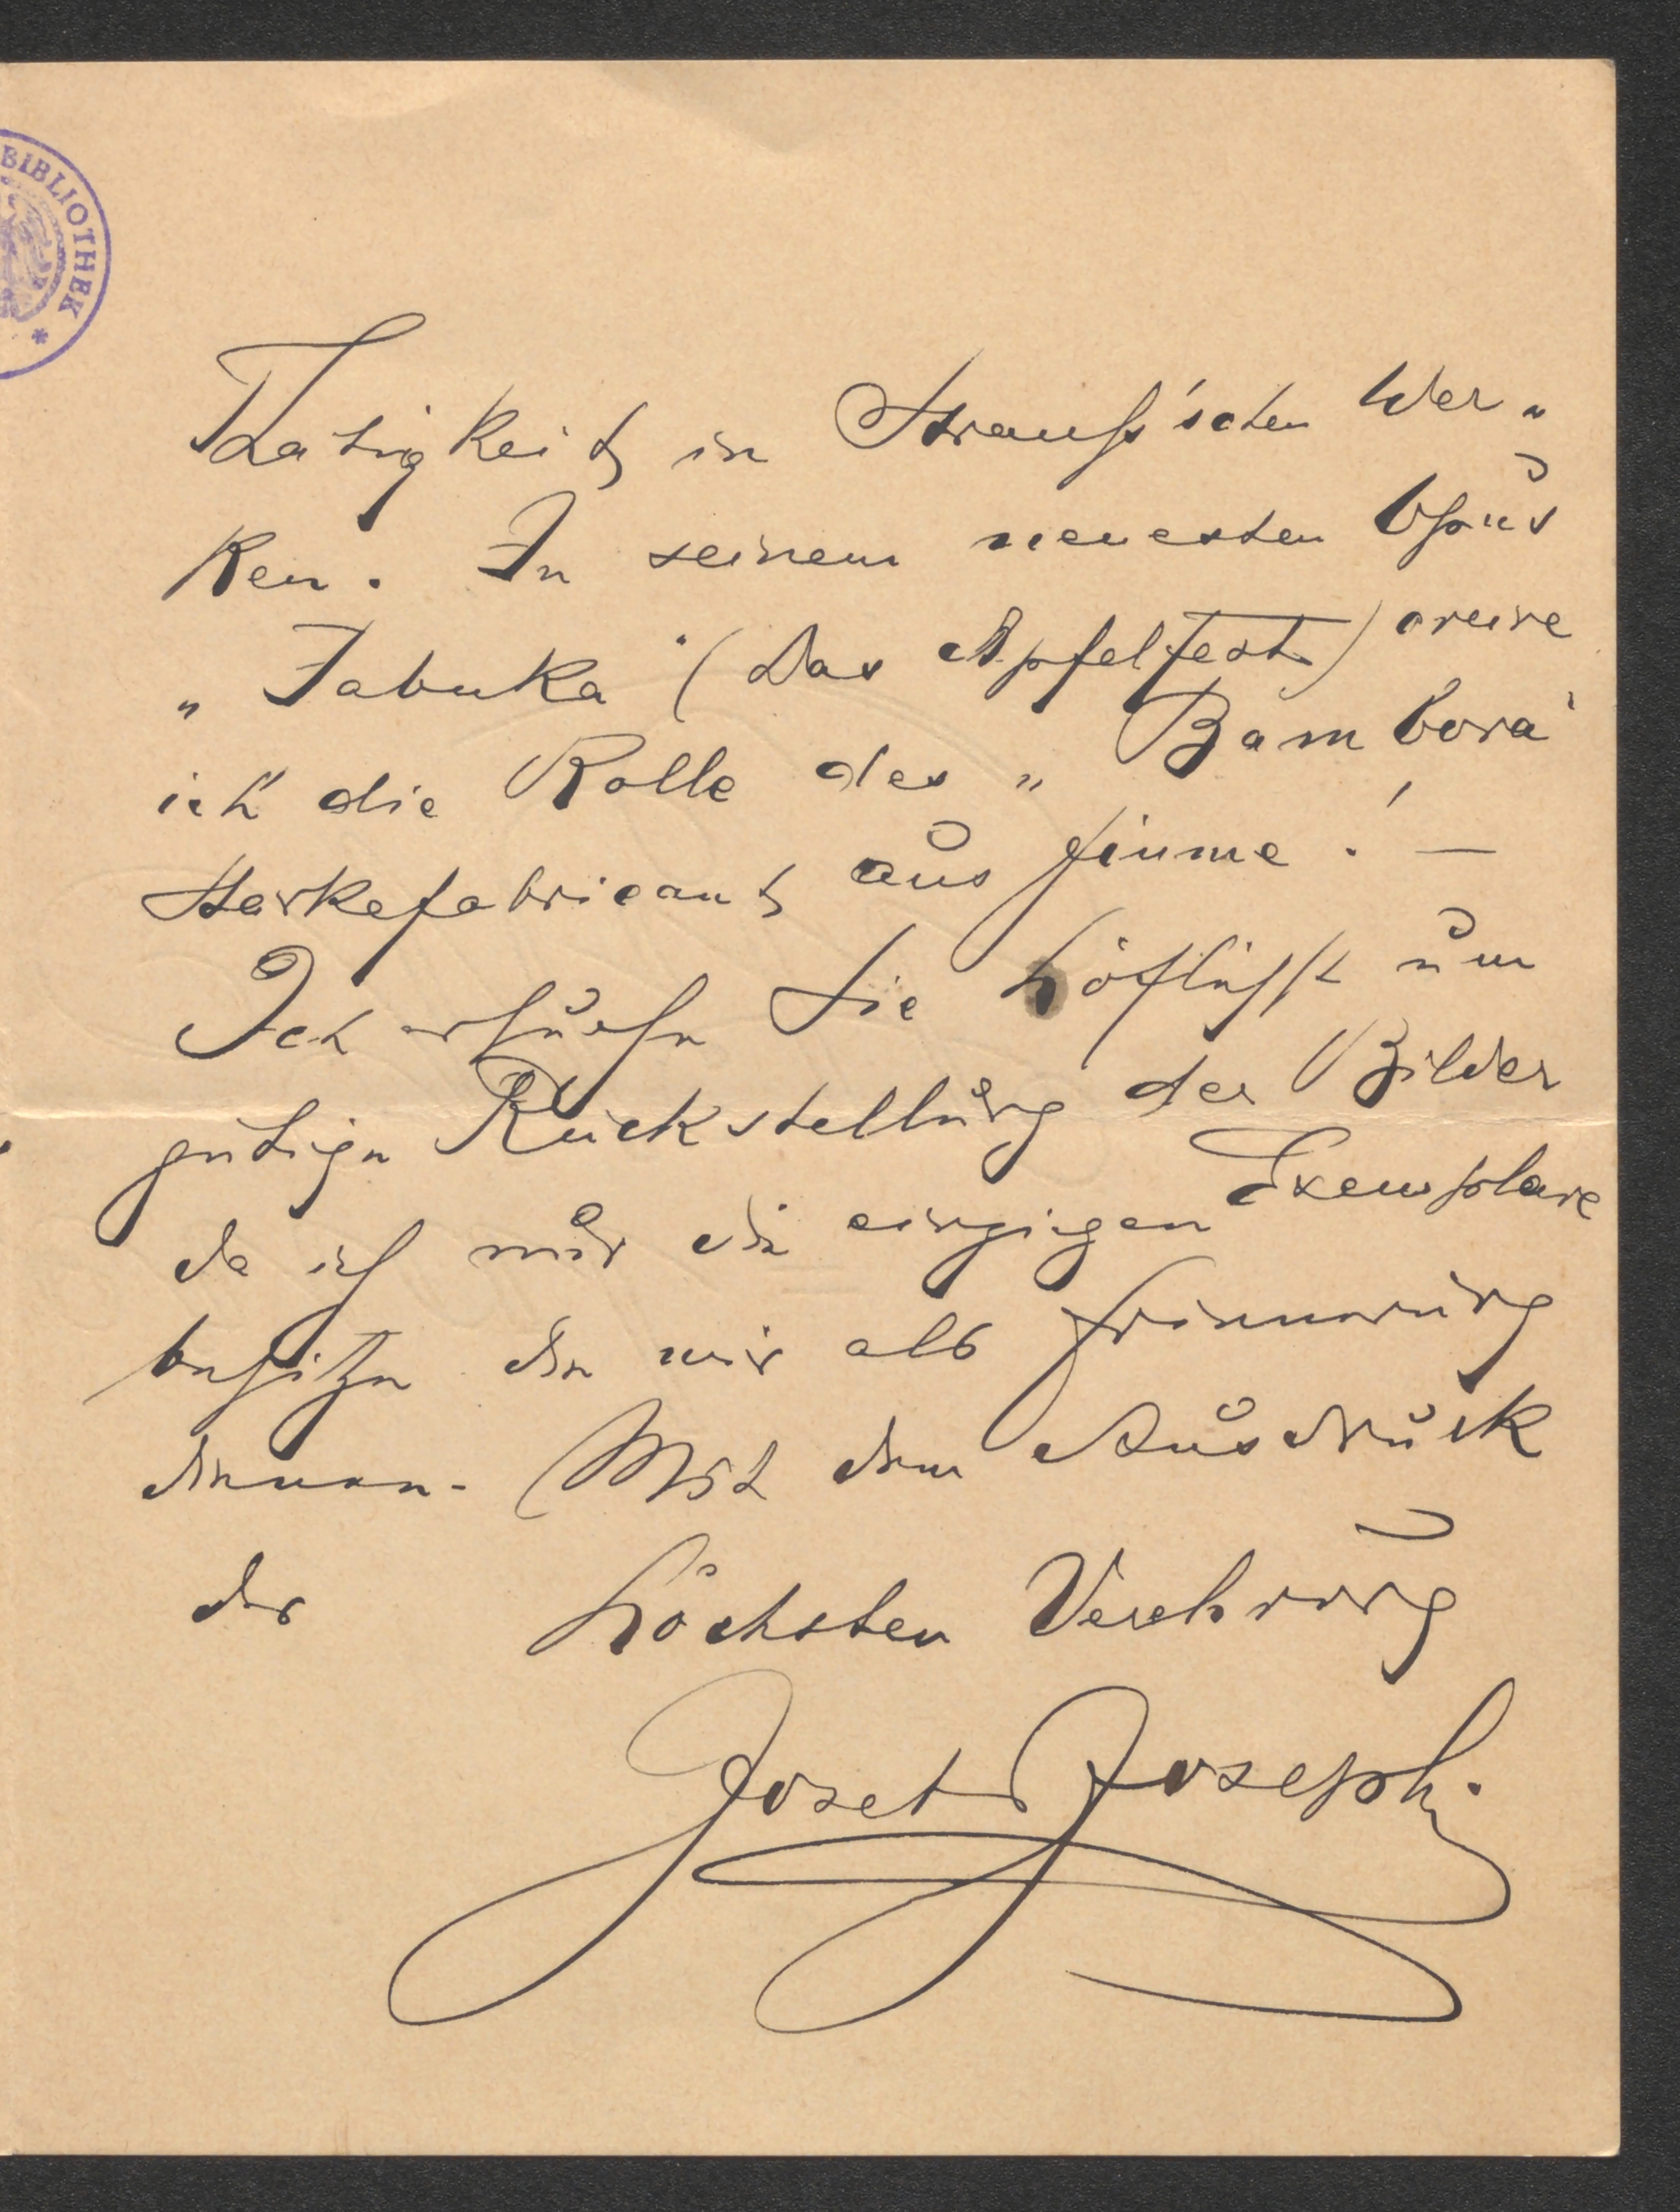 BIBLIOTHEK *
Thätigkeit in Strauß'schen Wer„
ken. In seinem neuesten Opus
„Jabuka" (Das Apfelfest) creire
ich die Rolle des „Bambora"
Sterkefabricant aus Fiume! —
Ich ersuche Sie höflichst um
gütige Rückstellung der Bilder
da ich nur die einzigen Exemplare
besitze die mir als Erinnerung
dienen. Mit dem Ausdruck
der höchsten Verehrung
Josef Josephi